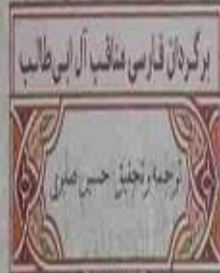 برگردان فارسی مناقب آل ابی طالب
ترجمه و تحقیق حسین صابری